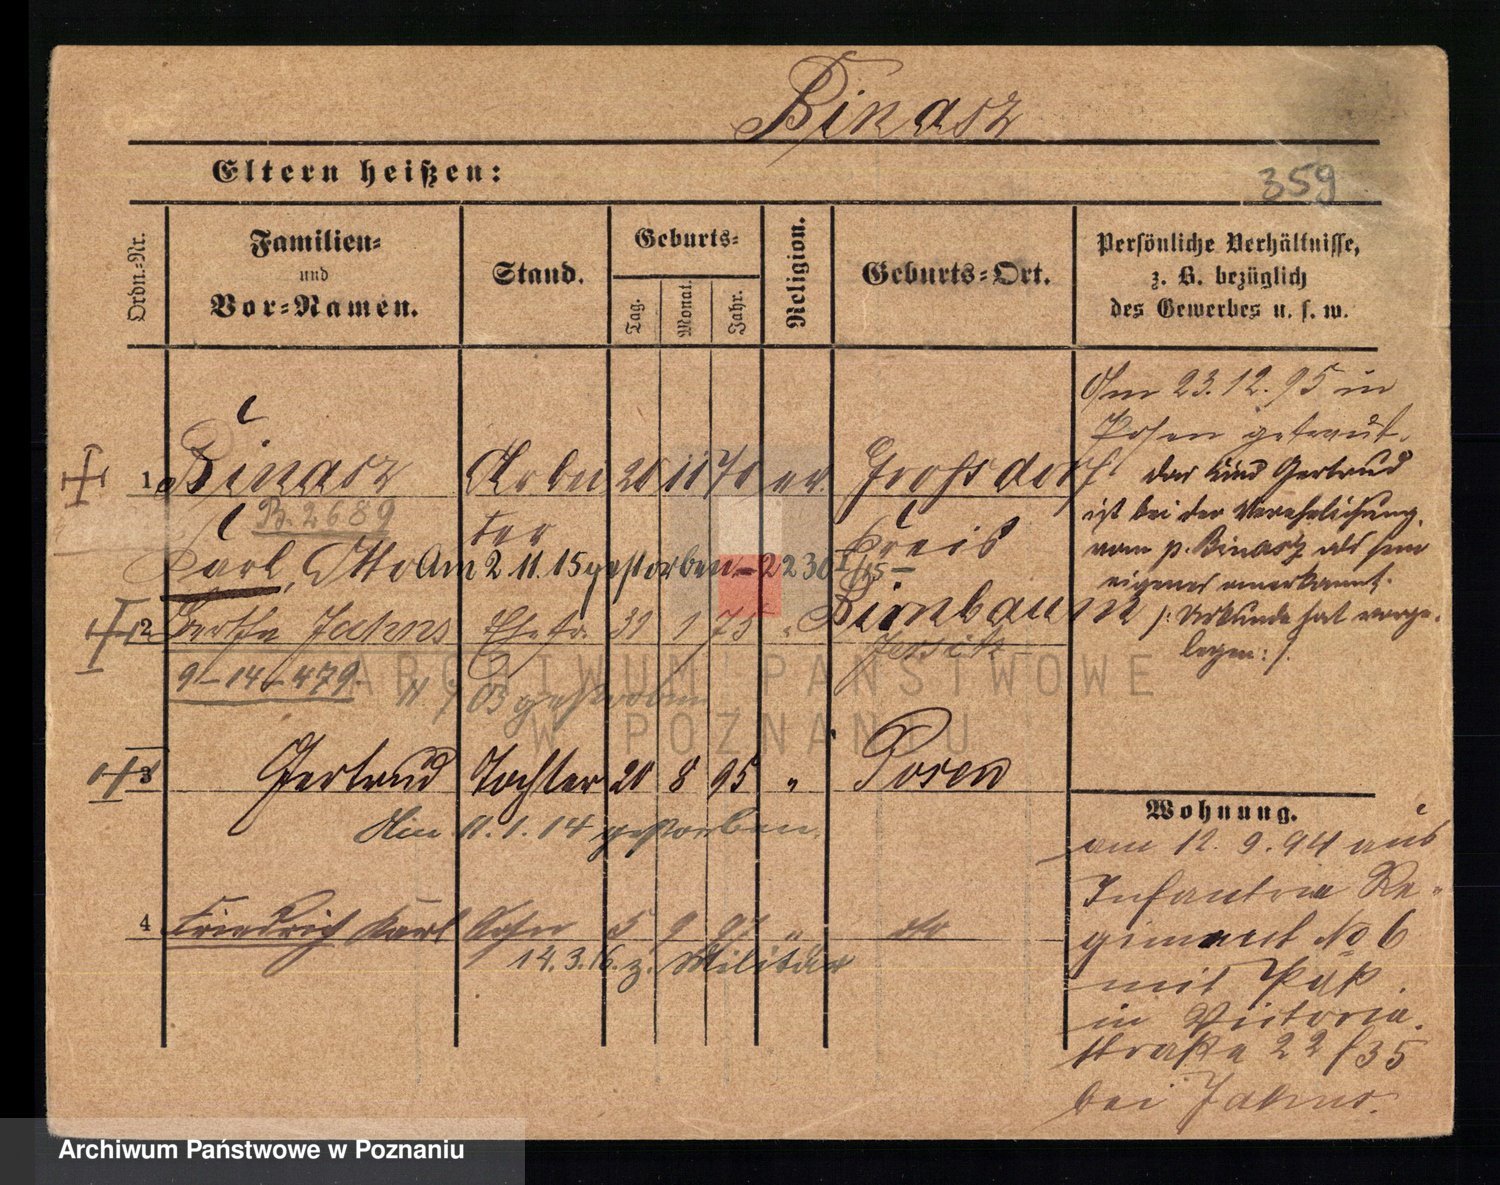 Binasz
Eltern heißen:
359
Ordn.-Nr.
Familien-
und
Vor-Namen.
Stand.
Geburts-
Tag.
Monat.
Jahr.
Religion.
Geburts-Ort.
Persönliche Verhältnisse,
z. B. bezüglich
des Gewerbes u. s. w.
Am 23.12.95 in
Posen getraut.
1 Binasz Arbei 20 11 70 ev. Grossdorf
ter Kreis
B. 2689
Karl, Otto Am 2.11.15 gestorben - 2230
Birnbaum
das Kind Gertrud
ist bei der Verehelichung
vom p. Binasz als sein
eigenes anerkannt.
/: Urkunde hat vorge-
legen :/.
2 Bertha Jahns Ehefr. 31 1 75 " Jersitz
9-14-479.
11.7.03 gestorben
3 Gertrud Tochter 20 8 95 " Posen
Am 11.1.14 gestorben.
4 Friedrich Karl Sohn 5 9 97 " do
14.3.16. z. Militär
Wohnung.
am 12.9.94 aus
Infanterie Re-
giment No 6
mit Paß
in Victoria
straße 22 / 35
bei Jahns.
ARCHIWUM PAŃSTWOWE
W POZNANIU
Archiwum Państwowe w Poznaniu